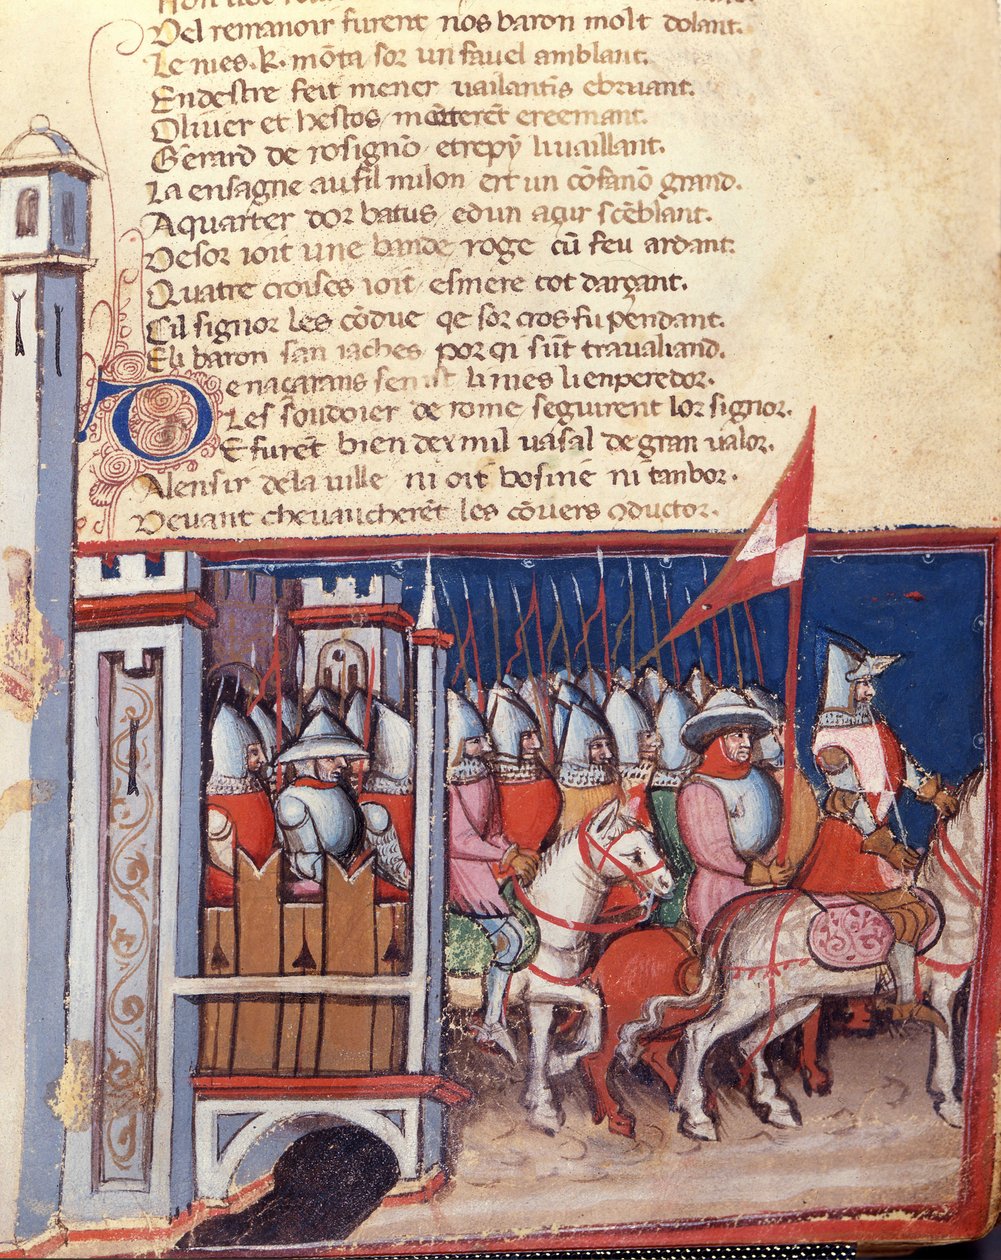 Del remanoir furent nos baron molt dolant.
Le nies .K. mōta sor un fauel amblant.
En destre feit mener uailantis ebruant.
Oliuer et hestos mōterēt ereemant.
Gerard de rosignō etrepy liuaillant.
La ensagne au fil milon ert un cōfanō grand.
A quarter dor batus edun açur scēblant.
Desor ioit une bande roge cū feu ardant.
Quatre croises ioit esmere tot darçant.
Cil signor les cōdue qe sor cros fu pendant.
E li baron san iaches por qi sūt traualiand.
De naçarans senist li nies li enperedor.
Les soudoier de rome seguirent lor signor.
E furēt bien dex mil uasal de gran ualor.
Alensir dela uille ni oit bosine ni tanbor.
Deuant cheuaucherēt les cōuers 9ductor.